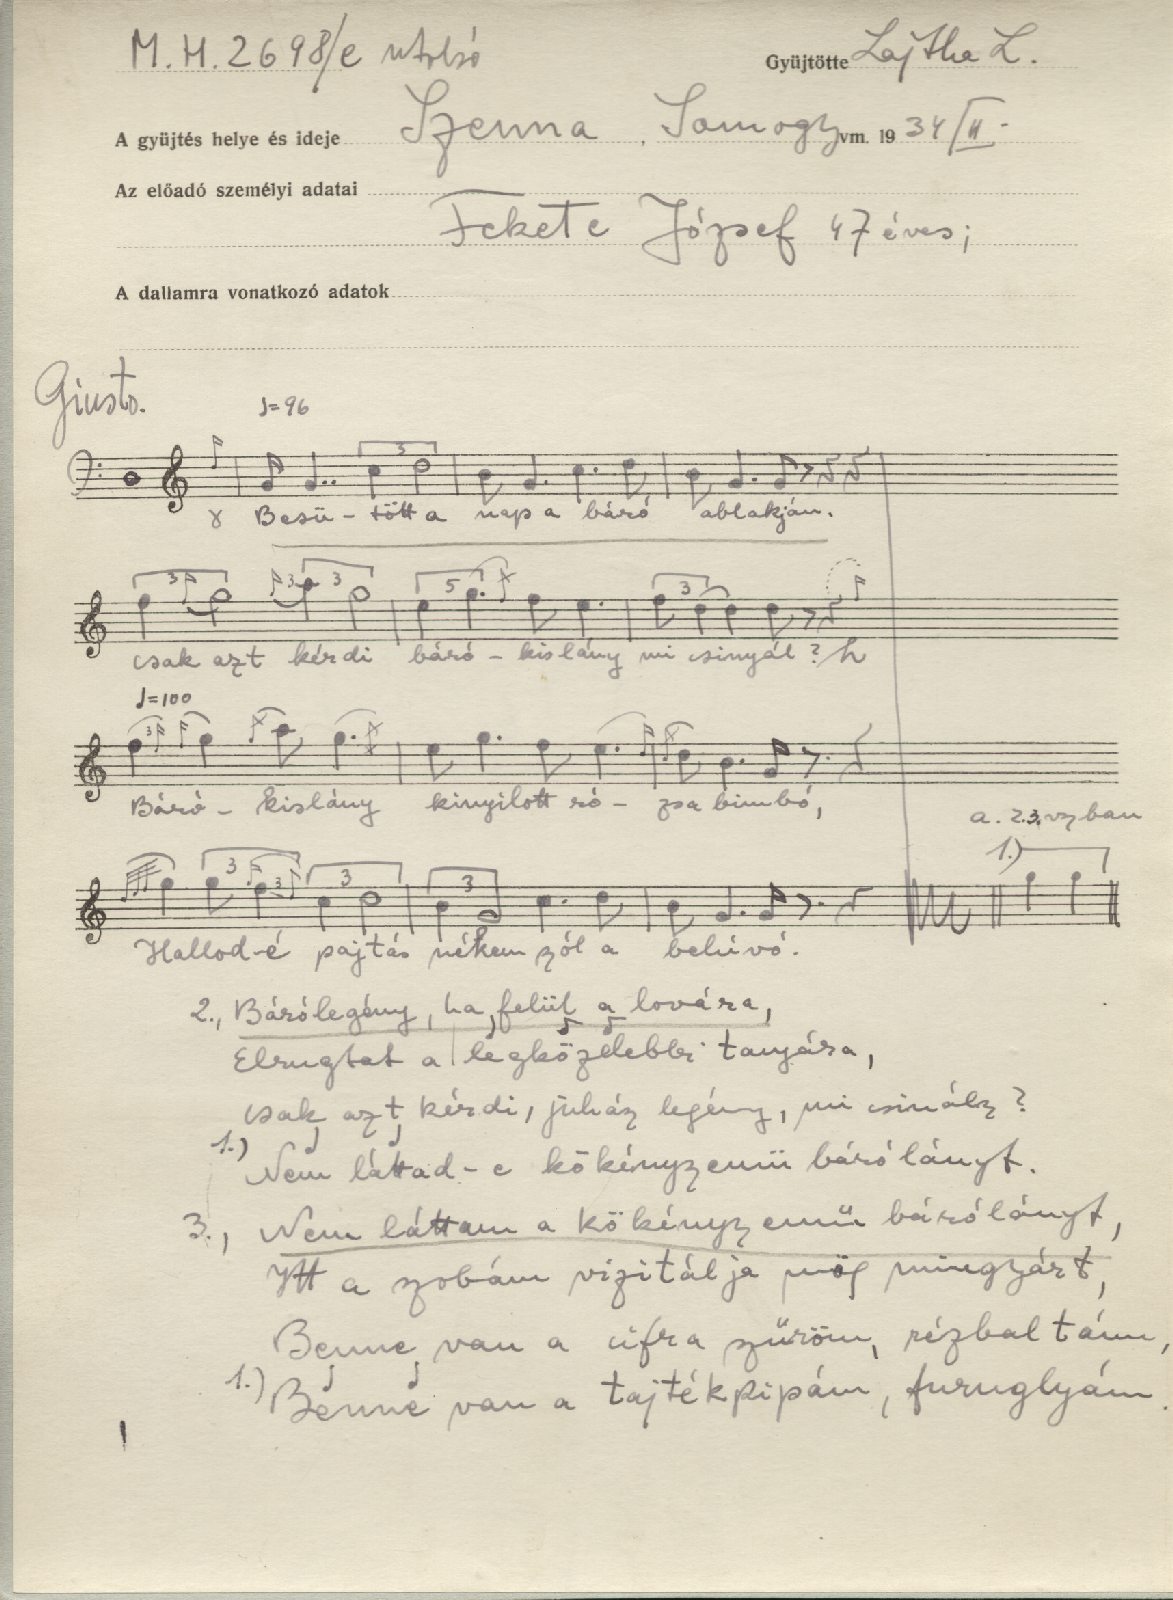 M. H. 2698/e utolsó
Gyüjtötte Lajtha L.
A gyüjtés helye és ideje Szenna, Somogy vm. 1934/II.
Az előadó személyi adatai
Fekete József 47 éves;
A dallamra vonatkozó adatok
Giusto.
♩=96
3
Besü - tött a nap a báró ablakján.
3 3 3 5 3
csak azt kérdi báró - kislány mi csinyál?
♩=100
3
Báró - kislány kinyilott ró - zsabimbó,
a. 2.3. vszban
1.)
3 3 3 3
Hallod-é pajtás nékem szól a behívó.
2., Bárólegény, ha felül a lovára,
Elrugtat a legközelebbi tanyára,
csak azt kérdi, juhász legény, mi csinálsz?
1.) Nem láttad-e kökényszemü bárólányt.
3., Nem láttam a kökényszemü bárólányt,
Itt a szobám vizitálja mög mingyárt,
Benne van a cifra szűröm, rézbaltám,
1.) Benne van a tajtékpipám, furuglyám.